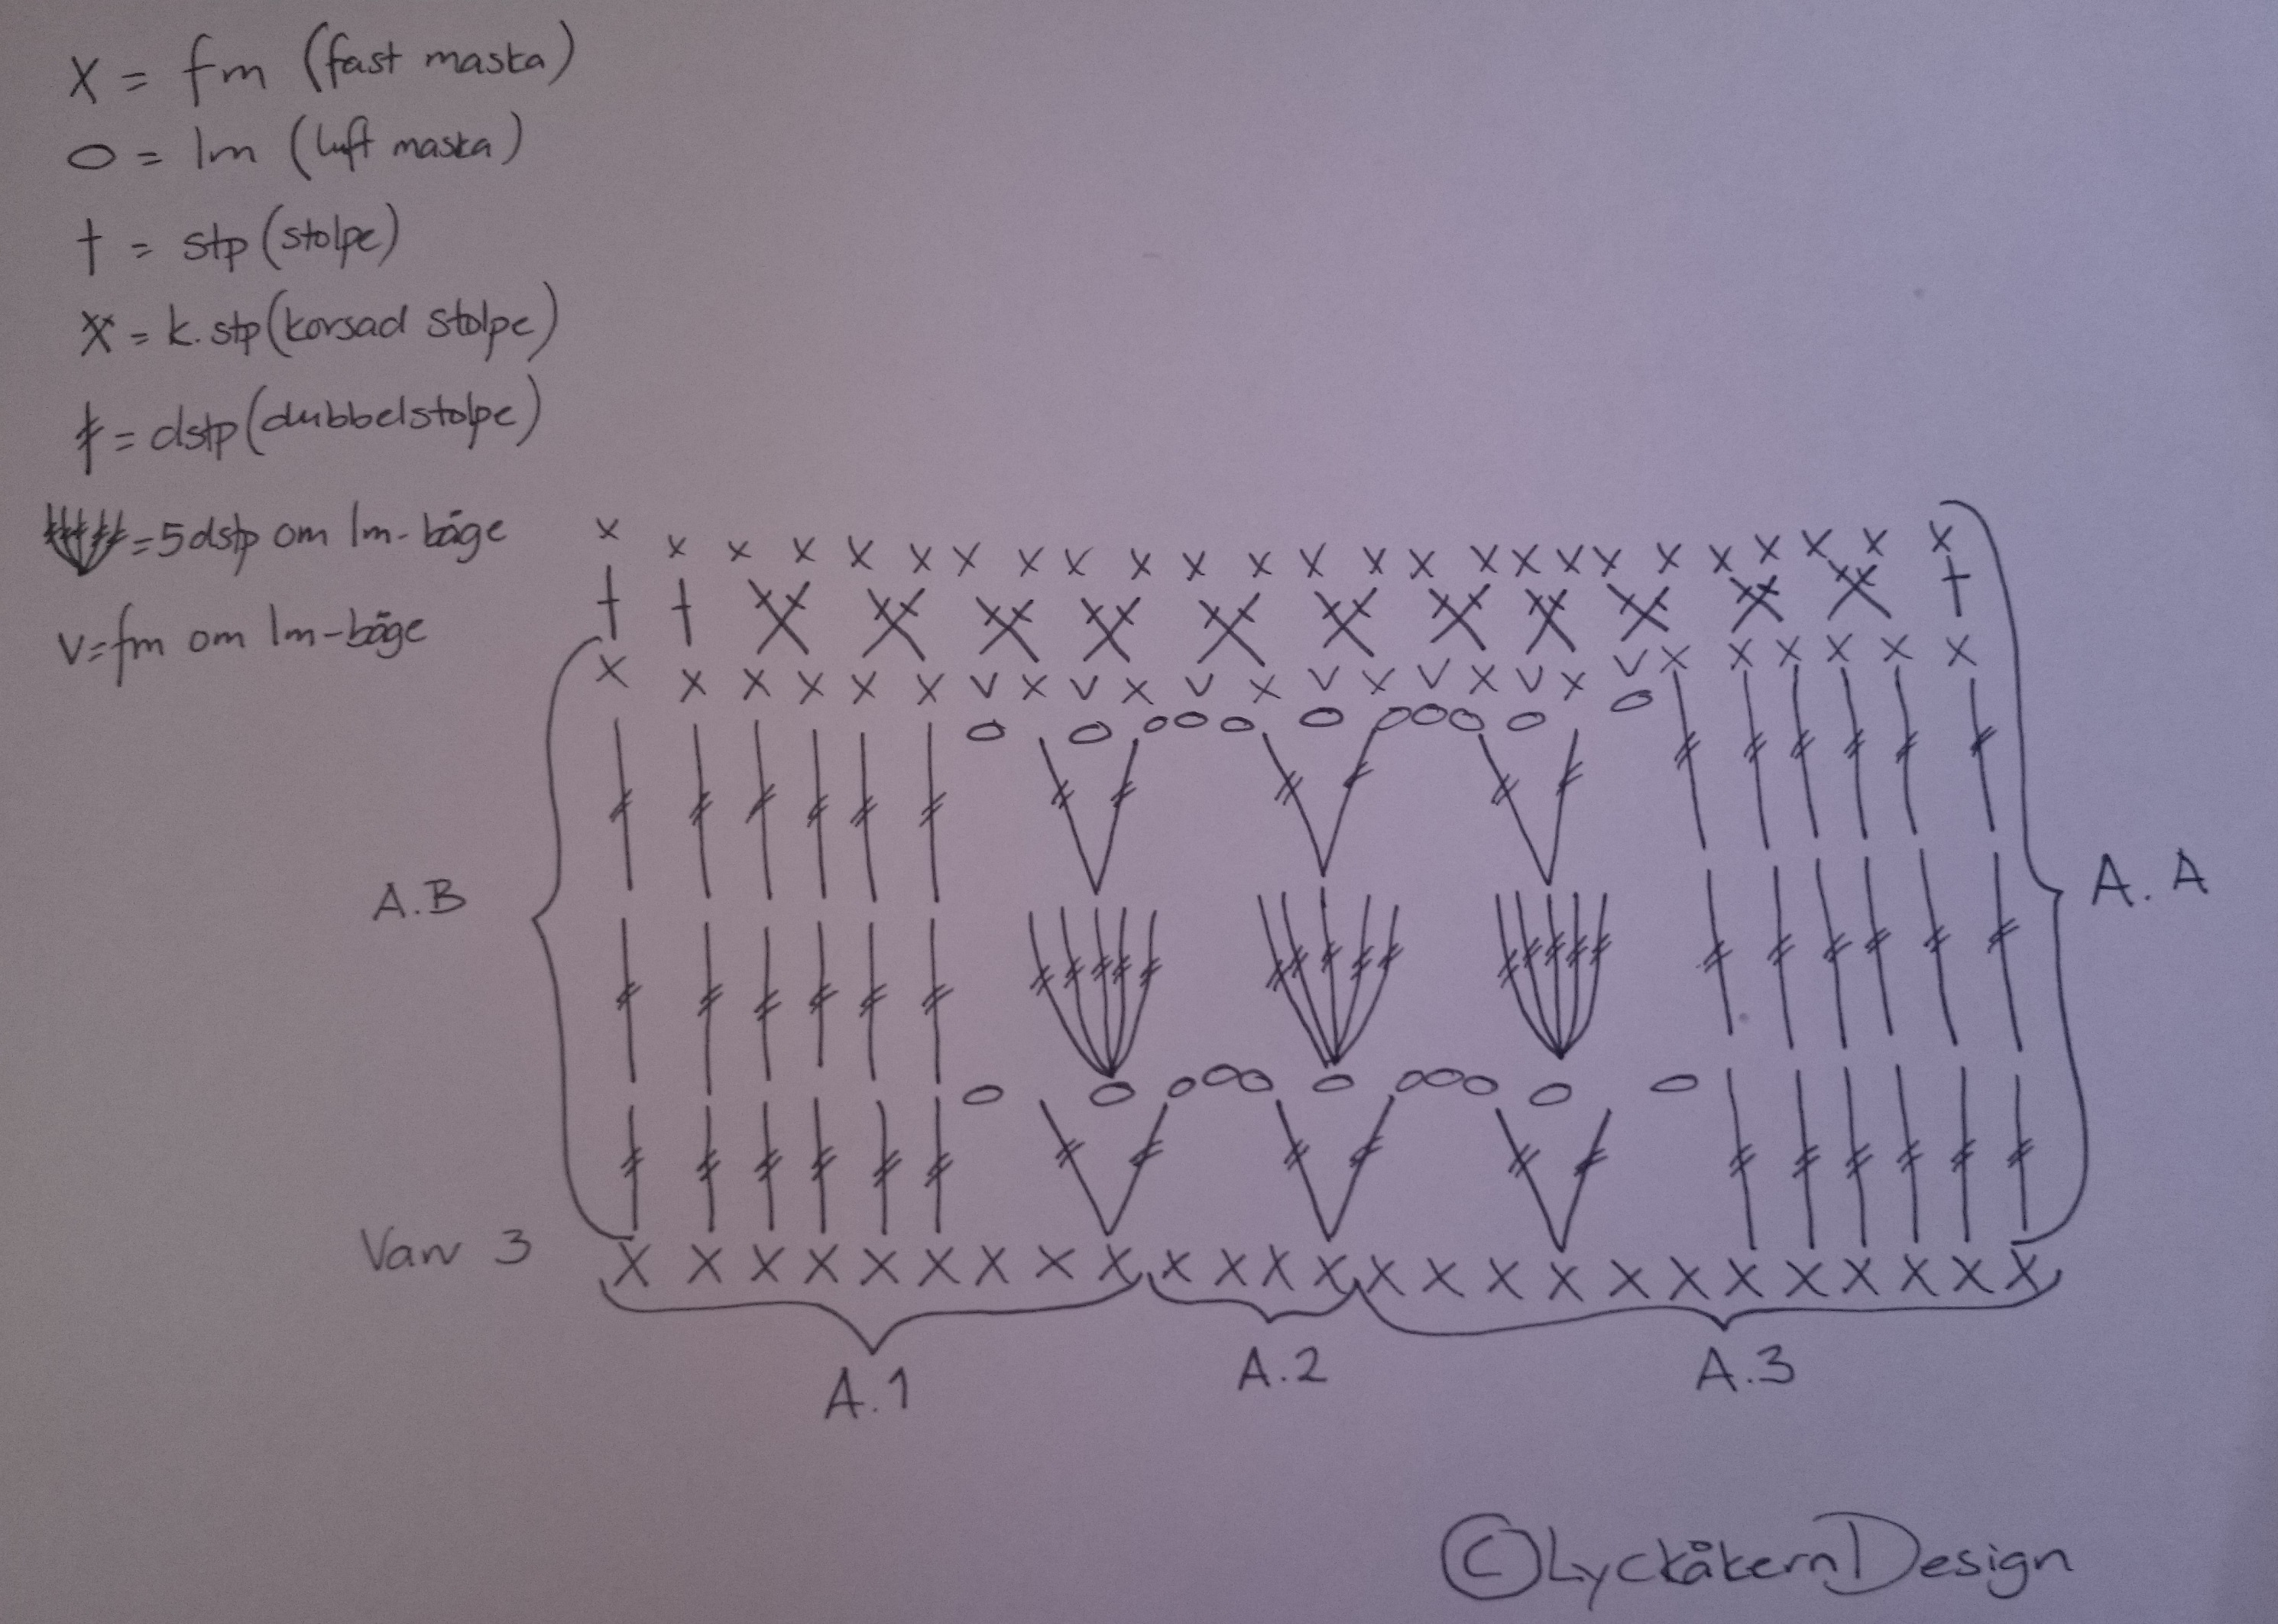 X = fm (fast maska)
O = lm (luft maska)
† = stp (stolpe)
X = k.stp (korsad stolpe)
ǂ = dstp (dubbelstolpe)
= 5dstp om lm-båge
V = fm om lm-båge
A.B
A.A
Varv 3
A.1
A.2
A.3
© LyckåkernDesign